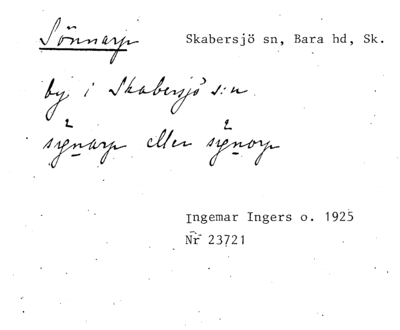 Sönnarp Skabersjö sn, Bara hd, Sk.
by i Skabersjö s:n
eller
Ingemar Ingers o. 1925
Nr 23721